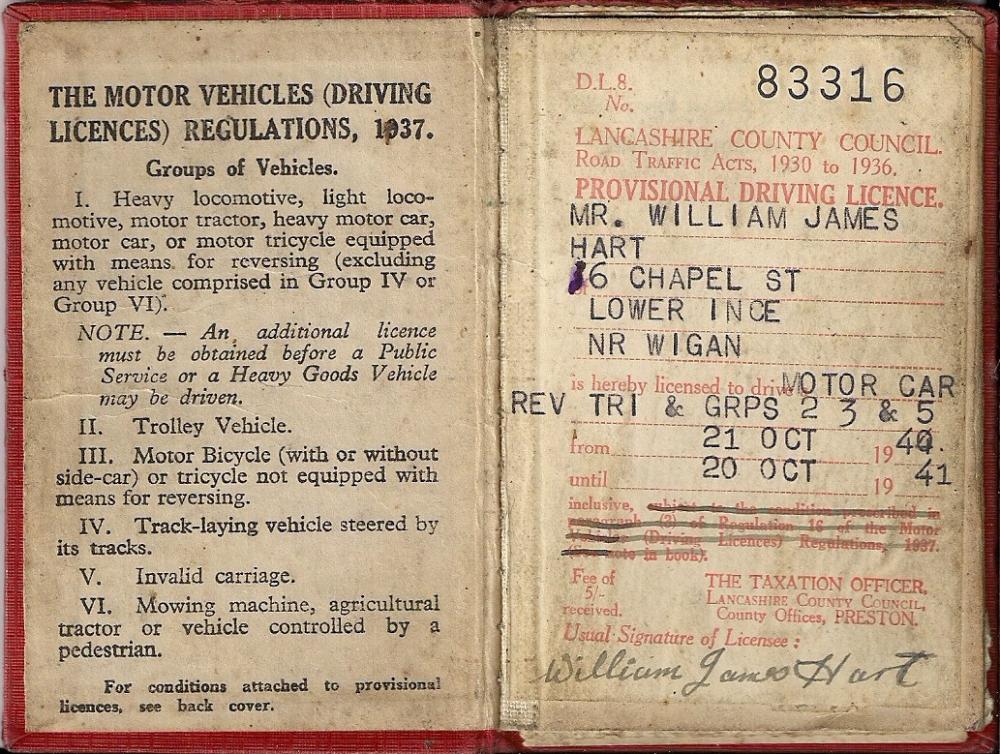 THE MOTOR VEHICLES (DRIVING
LICENCES) REGULATIONS, 1937.
Groups of Vehicles.
I. Heavy locomotive, light loco-
motive, motor tractor, heavy motor car,
motor car, or motor tricycle equipped
with means for reversing (excluding
any vehicle comprised in Group IV or
Group VI).
NOTE. — An additional licence
must be obtained before a Public
Service or a Heavy Goods Vehicle
may be driven.
II. Trolley Vehicle.
III. Motor Bicycle (with or without
side-car) or tricycle not equipped with
means for reversing.
IV. Track-laying vehicle steered by
its tracks.
V. Invalid carriage.
VI. Mowing machine, agricultural
tractor or vehicle controlled by a
pedestrian.
For conditions attached to provisional
licences, see back cover.
D.L.8.
No. 83316
LANCASHIRE COUNTY COUNCIL.
ROAD TRAFFIC ACTS, 1930 to 1936.
PROVISIONAL DRIVING LICENCE.
MR. WILLIAM JAMES
HART
6 CHAPEL ST
LOWER INCE
NR WIGAN
is hereby licensed to drive MOTOR CAR
REV TRI & GRPS 2 3 & 5
from 21 OCT 1940.
until 20 OCT 19 41
inclusive, subject to the condition prescribed in
paragraph (3) of Regulation 16 of the Motor
Vehicles (Driving Licences) Regulations, 1937.
(See note in book).
Fee of
5/-
received.
THE TAXATION OFFICER,
LANCASHIRE COUNTY COUNCIL,
County Offices, PRESTON.
Usual Signature of Licensee :
William James Hart